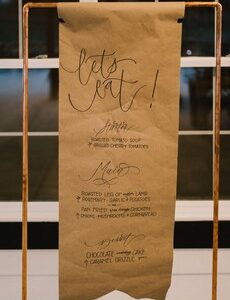 let's
eat!
ROASTED TOMATO SOUP
GRILLED CHERRY TOMATOES
Mains
ROASTED LEG OF LAMB
ROSEMARY GARLIC & POTATOES
OR
PAN FRIED CHICKEN
MUSHROOMS & CORNBREAD
Dessert
CHOCOLATE CAKE
CARAMEL DRIZZLE